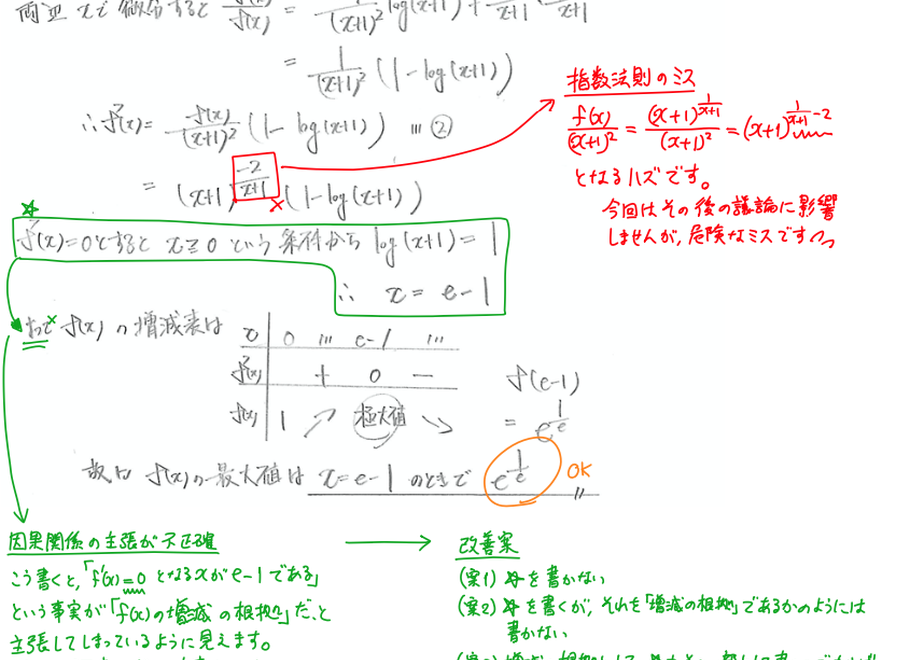 両辺 x で微分すると f'(x)/f(x) = 1/(x+1)² log(x+1) + 1/x+1 · 1/x+1
= 1/(x+1)² (1 - log(x+1))
∴ f'(x) = f(x)/(x+1)² (1 - log(x+1)) … ②
= (x+1)^(-2/x+1) (1 - log(x+1))
×
指数法則のミス
f(x)/(x+1)² = (x+1)^(1/x+1)/(x+1)² = (x+1)^(1/x+1 - 2)
となるハズです。
今回はその後の議論に影響
しませんが、危険なミスです
☆
f'(x)=0とすると x≧0 という条件から log(x+1) = 1
∴ x = e-1
よって× f(x) の増減表は
x 0 … e-1 …
f'(x) + 0 −
f(x) 1 ↗ 極大値 ↘
f(e-1)
= e^(1/e)
故に f(x)の最大値は x=e-1 のときで e^(1/e) OK
因果関係の主張が不正確 → 改善案
こう書くと、「f'(x)=0 となるxがe-1である」
という事実が「f(x)の増減の根拠」だ、と
主張してしまっているように見えます。
(案1) ☆を書かない
(案2) ☆を書くが、それを「増減の根拠」であるかのようには
書かない